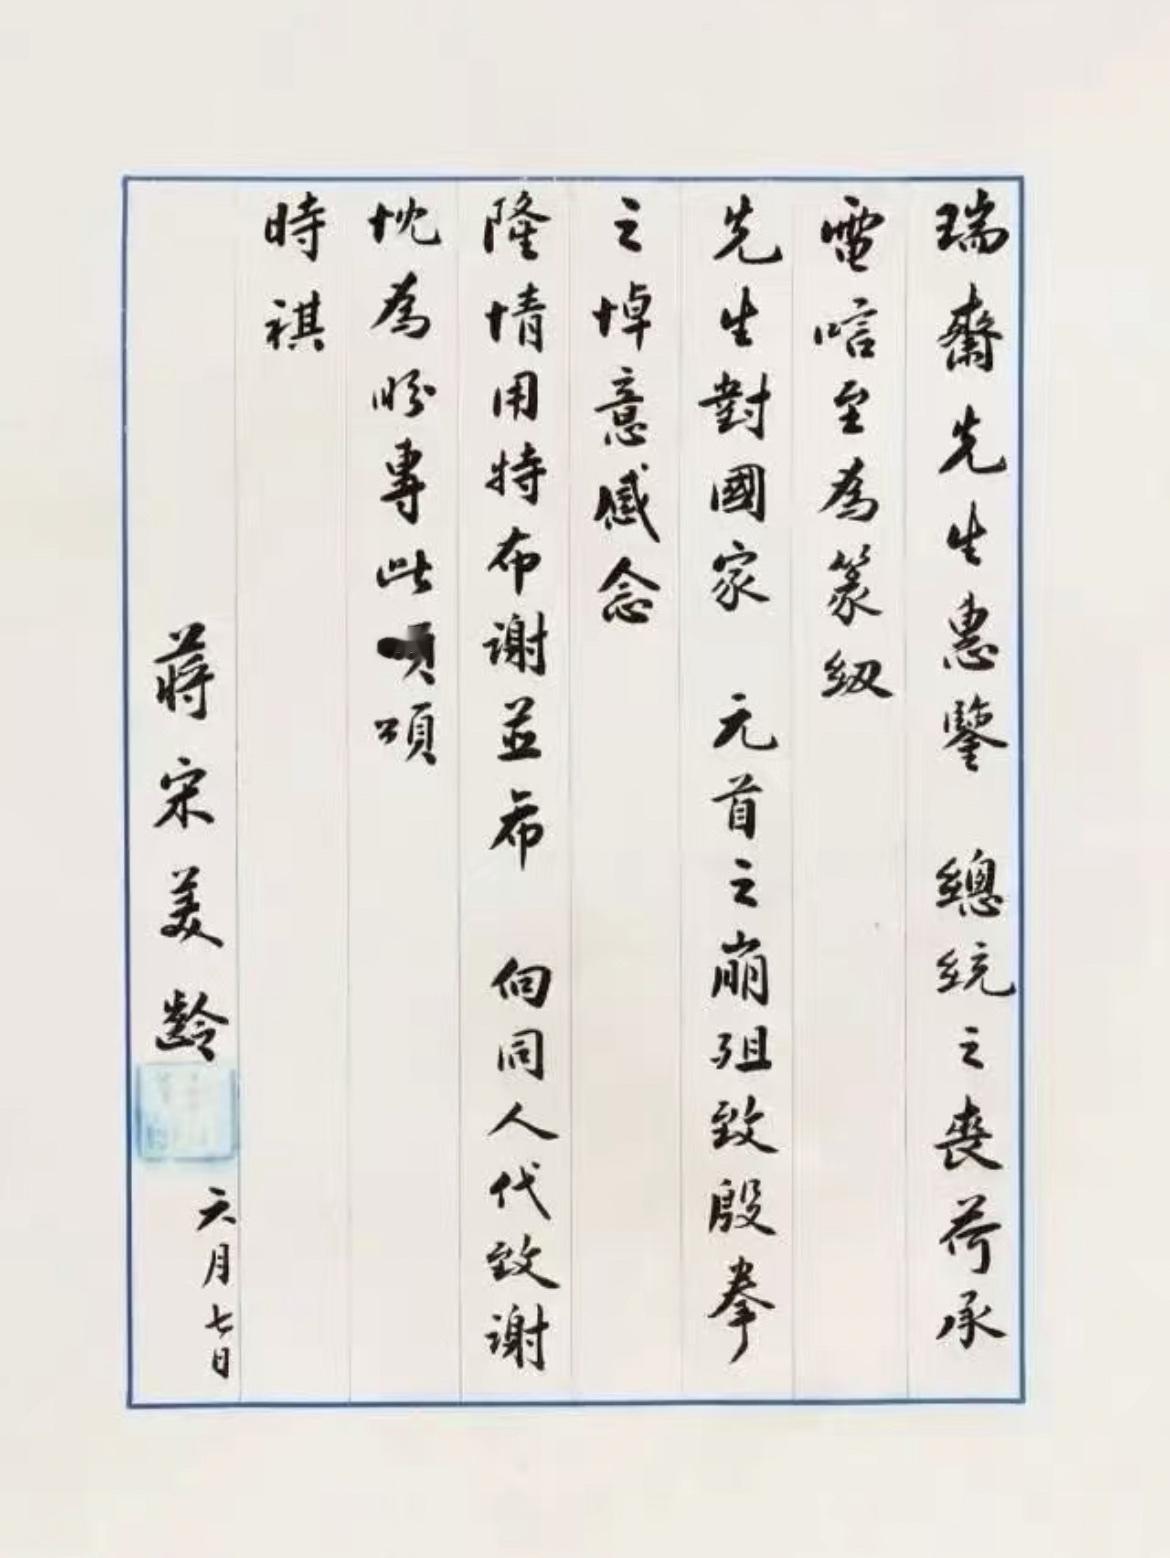 瑞齋先生惠鑒 總統之喪荷承
電唁至為篆紉
先生對國家 元首之崩殂致殷拳
之悼意感念
隆情用特布謝並希 向同人代致謝
忱為盼專此 頌
時祺
蔣宋美齡
六月七日